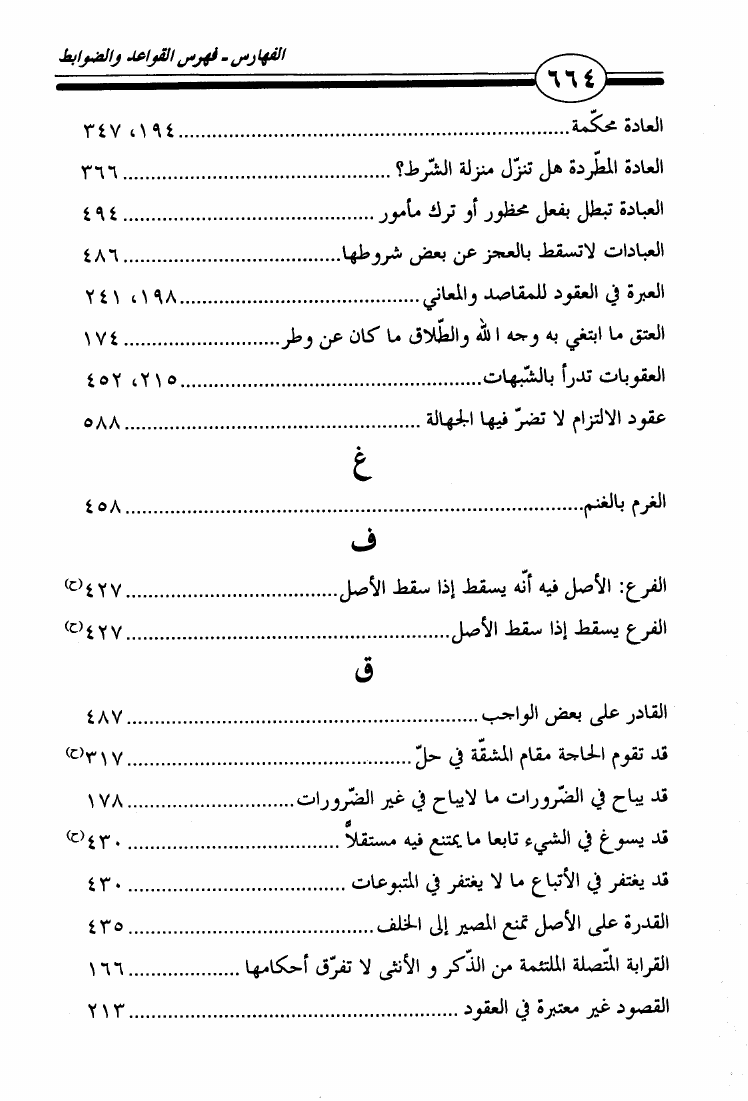 الفهارس ـ فهرس القواعد والضوابط
٦٦٤
العادة محكّمة......................................................................١٩٤، ٣٤٧
العادة المطّردة هل تنزّل منزلة الشّرط؟ ................................................ ٣٦٦
العبادة تبطل بفعل محظور أو ترك مأمور ............................................. ٤٩٤
العبادات لاتسقط بالعجز عن بعض شروطها....................................... ٤٨٦
العبرة في العقود للمقاصد والمعاني...........................................١٩٨، ٢٤١
العتق ما ابتغي به وجه الله والطّلاق ما كان عن وطر............................. ١٧٤
العقوبات تدرأ بالشّبهات......................................................٢١٥، ٤٥٢
عقود الالتزام لا تضرّ فيها الجهالة ..................................................... ٥٨٨
غ
الغرم بالغنم................................................................................. ٤٥٨
ف
الفرع: الأصل فيه أنّه يسقط إذا سقط الأصل...................................... ٤٢٧(ح)
الفرع يسقط إذا سقط الأصل.......................................................... ٤٢٧(ح)
ق
القادر على بعض الواجب .............................................................. ٤٨٧
قد تقوم الحاجة مقام المشقّة في حلّ .................................................. ٣١٧(ح)
قد يباح في الضّرورات ما لايباح في غير الضّرورات.............................. ١٧٨
قد يسوغ في الشيء تابعا ما يمتنع فيه مستقلاًّ ...................................... ٤٣٠(ح)
قد يغتفر في الأتباع ما لا يغتفر في المتبوعات ...................................... ٤٣٠
القدرة على الأصل تمنع المصير إلى الخلف.......................................... ٤٣٥
القرابة المتّصلة الملتئمة من الذّكر و الأنثى لا تفرّق أحكامها .................... ١٦٦
القصود غير معتبرة في العقود .......................................................... ٢١٣